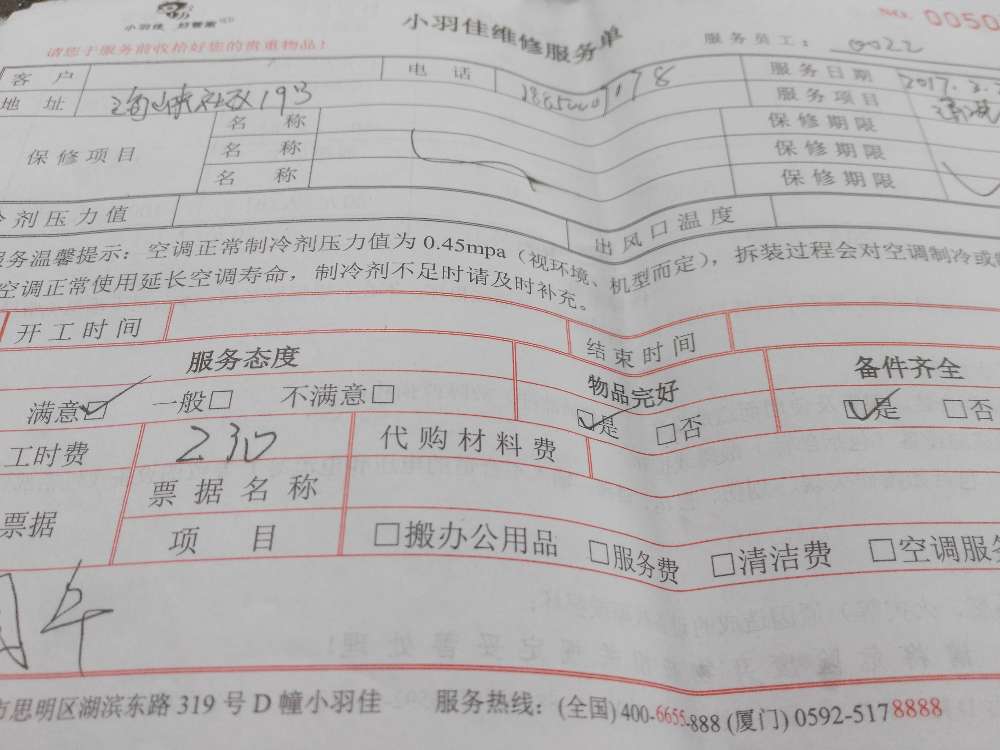 小羽佳 好管家
小羽佳维修服务单
NO. 0050
请您于服务前收拾好您的贵重物品!
服务员工: 0022
客户 电话 服务日期 2017.
地址 海峡社区19号 服务项目
保修项目 名称 保修期限
名称 保修期限
名称 保修期限
剂压力值 出风口温度
服务温馨提示: 空调正常制冷剂压力值为 0.45mpa (视环境、机型而定), 拆装过程会对空调制冷或
空调正常使用延长空调寿命, 制冷剂不足时请及时补充。
开工时间 结束时间
服务态度 物品完好 备件齐全
满意☑ 一般□ 不满意□ ☑是 □否 ☑是 □否
工时费 230 代购材料费
票据 票据名称
项目 □搬办公用品 □服务费 □清洁费 □空调服务
市思明区湖滨东路 319 号 D 幢小羽佳 服务热线: (全国) 400-6655-888 (厦门) 0592-5178888